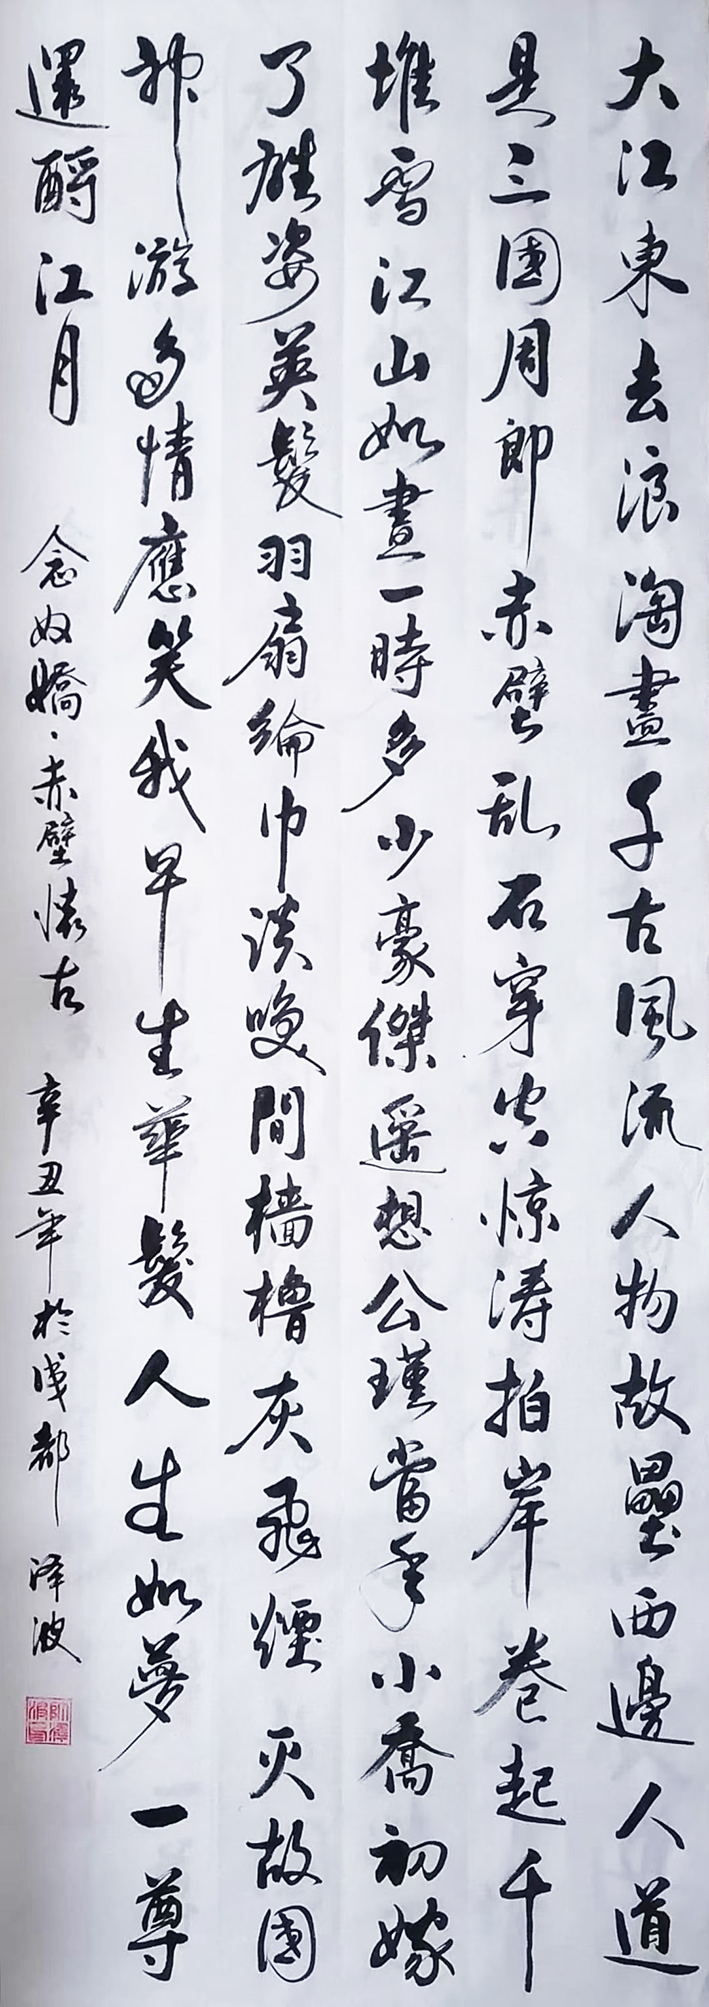 大江東去浪淘盡千古風流人物故壘西邊人道
是三國周郎赤壁乱石穿空惊涛拍岸卷起千
堆雪江山如畫一時多少豪傑遥想公瑾當年小喬初嫁
了雄姿英髮羽扇綸巾談笑間檣櫓灰飛煙灭故國
神游多情應笑我早生華髮人生如夢一尊
還酹江月
念奴嬌·赤壁懷古
辛丑年於成都
泽波